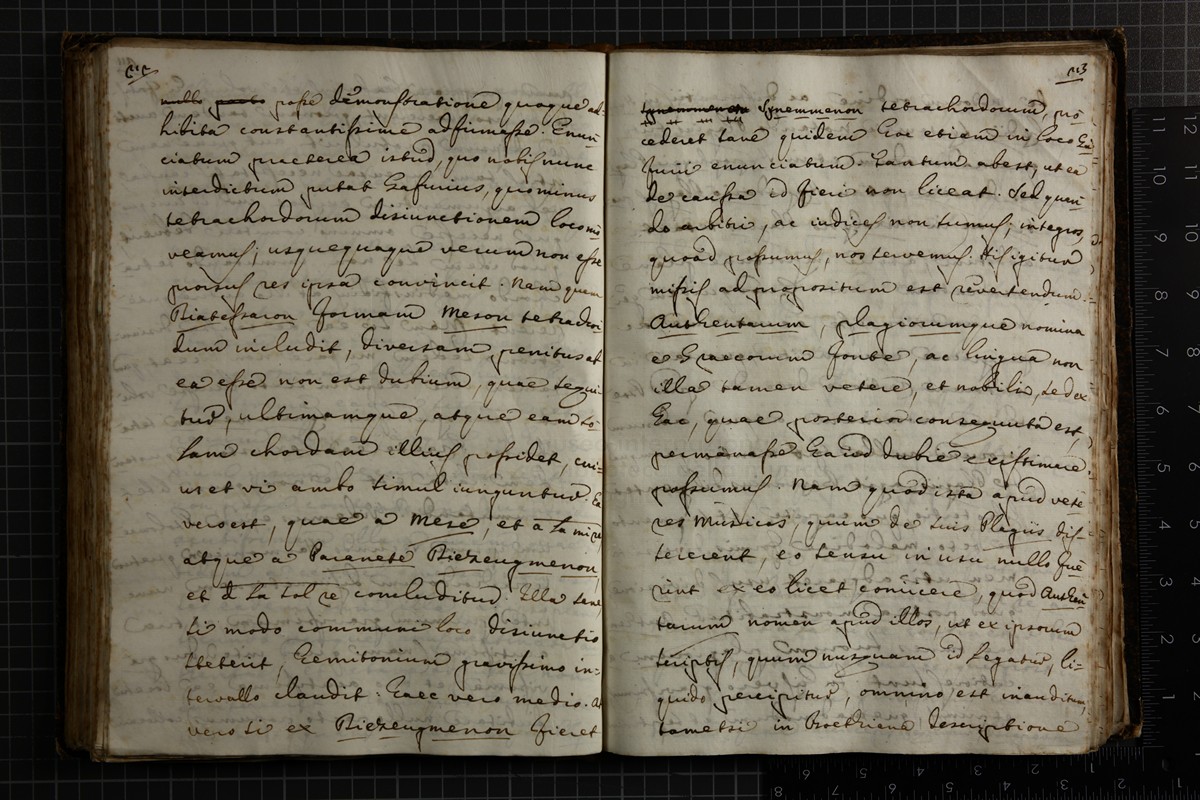 nullo pacto posse demonstratione quoque ad-
hibita constantissime adfirmasse. Enun
ciatum praeterea istud, quo nobis nunc
interdictum putat Gafurius, quominus
tetrachordorum disiunctionem loco mo
veamus; usquequaque verum non esse
prorsus res ipsa convincit. Nam quum
Diatessaron formam Meson tetrachor
dum includit, diversam penitus ab
ea esse non est dubium, quae sequi-
tur, ultimamque, atque eam so-
lam chordam illius possidet, cui-
us et vi ambo simul iunguntur. Ea
vero est, quae a Mese, et a la mi re
atque a Paranete Diezeugmenon,
et d la sol re concluditur. Illa sane
si modo communi loco disiunctio
steterit, hemitonium gravissimo in-
tervallo claudit: haec vero medio. At
vero si ex Diezeugmenon fieret
113
Synemmenon tetrachordorum, pro
cederet sane quidem hac etiam in loco Ga
furii enunciatum. Tantum abest, ut ea
de caussa id fieri non liceat. Sed quan
do arbitri, ac iudices non sumus, integros,
quoad possumus, nos servemus. His igitur
missis ad propositum est revertendum.
Authentarum, plagiorumque nomina
e Graecorum fonte, ac lingua non
illa tamen vetere, et nobili, sed ex
hac, quae posterior consequuta est,
permanasse haud dubie existimare
possumus. Nam quod ista apud vete
res Musicos, quum de suis Plagiis dis-
sererent, eo sensu in usu nullo fue
rint ex eo licet coniicere, quod Authen
tarum nomen apud illos, ut ex ipsorum
scriptis, quum nusquam id legatur, li-
quido percipitur, omnino est inauditum,
tametsi in Boethiana descriptione